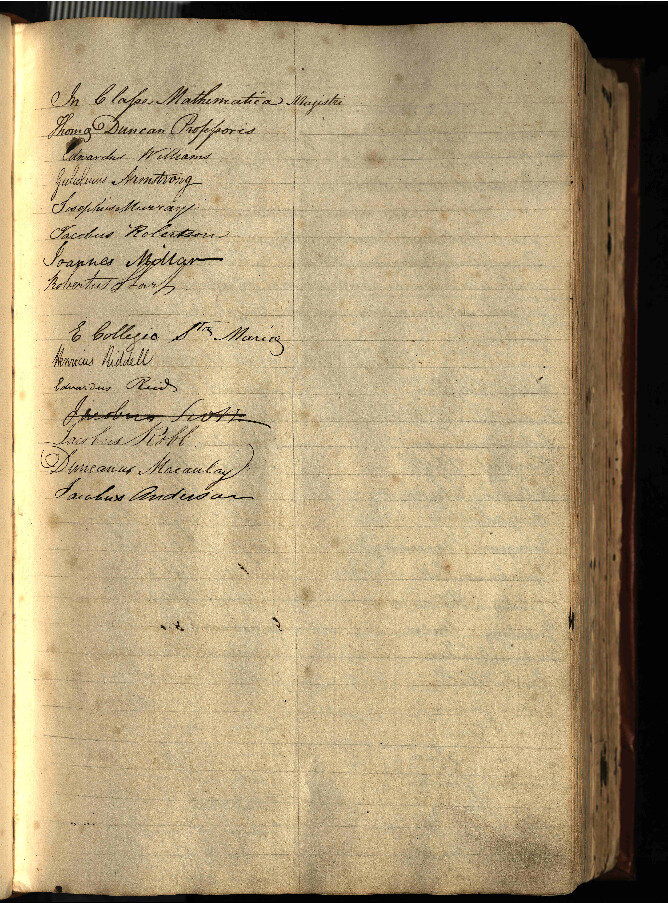 In Classe Mathematica Magistri
Thomæ Duncan Professoris
Edvardus Williams
Gulielmus Armstrong
Josephus Murray
Jacobus Robertson
Joannes Millar
Robertus
E Collegio Stæ Mariæ
Henricus Riddell
Edvardus Reid
Jacobus Scott
Jacobus Robb
Duncanus Macaulay
Jacobus Anderson